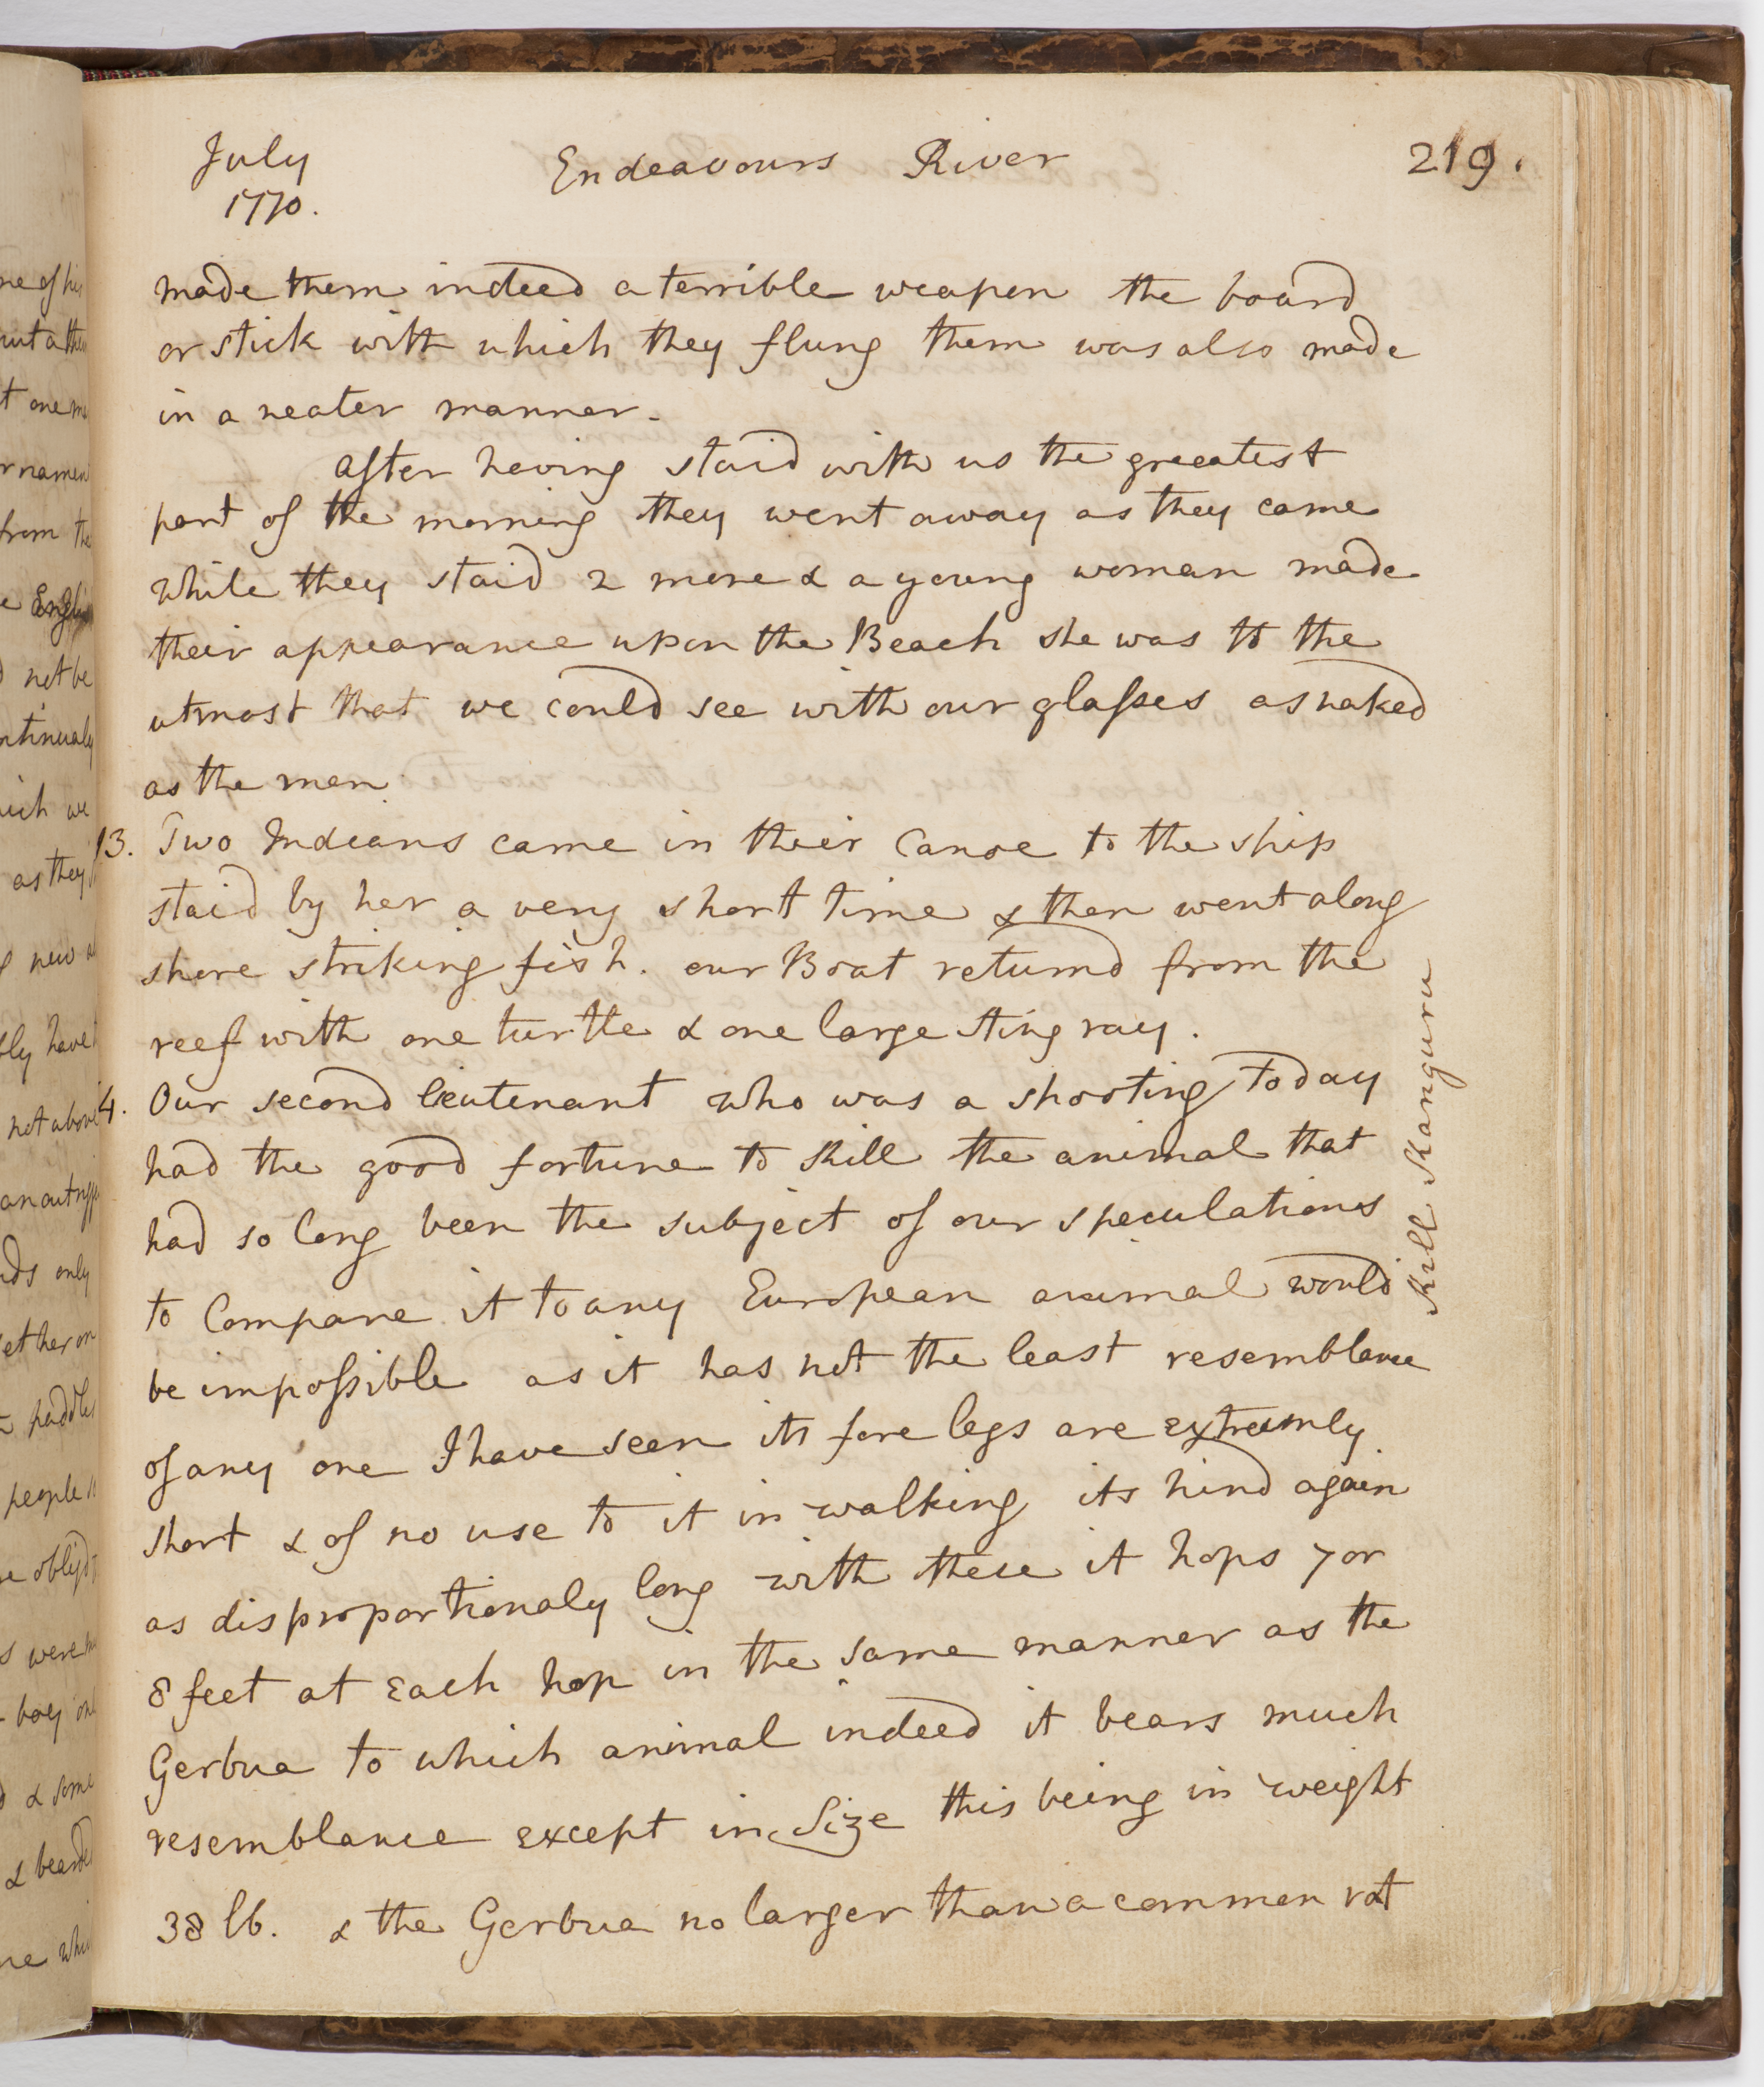 July
1770.
Endeavours River
219.
made them indeed a terrible weapon the board
or stick with which they flung them was also made
in a neater manner.
after having staid with us the greeatest
part of the morning they went away as they came
while they staid 2 more & a young woman made
their appearance upon the Beach she was to the
utmost that we could see with our glasses as naked
as the men
13. Two Indians came in their Canoe to the ship
staid by her a very short time & then went along
shore striking fish. our Boat returnd from the
reef with one turtle & one large sting ray.
4. Our second leutenant who was a shooting today
had the good fortune to kill the animal that
had so long been the subject of our speculations
to Compare it to any European animal would
be impossible as it has not the least resemblance
of any one I have seen its fore legs are extreemly
short & of no use to it in walking its hind again
as disproportionaly long with these it hops 7 or
8 feet at each hop in the same manner as the
Gerbua to which animal indeed it bears much
resemblance except in Size this being in weight
38 lb. & the Gerbua no larger than a common rat
Kill Kanguru
not be
as they
have
not above
only
people
were
boy
& some